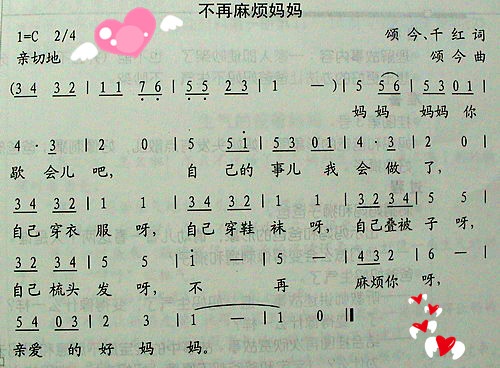 不再麻烦妈妈
1=C 2/4 颂今、千红 词
亲切地 颂今 曲
(34 32 | 1 1 76 | 55 23 | 1 —) | 5 556 | 5301 |
妈 妈妈 妈妈 你
4·3 | 2 0 | 5 551 | 5301 | 4·3 | 2 0 |
歇会儿吧, 自己的事儿我会做了,
34 32 | 1 1 | 34 32 | 1 1 | 32 34 | 5 5 |
自己穿衣服呀, 自己穿鞋袜呀, 自己叠被子呀,
32 34 | 5 5 | 1 — | 1 — | 432 | 6 — |
自己梳头发呀, 不再麻烦你呀,
54 03 | 2 3 | 1 — | 1 — | 1 0 ‖
亲爱的好妈妈。